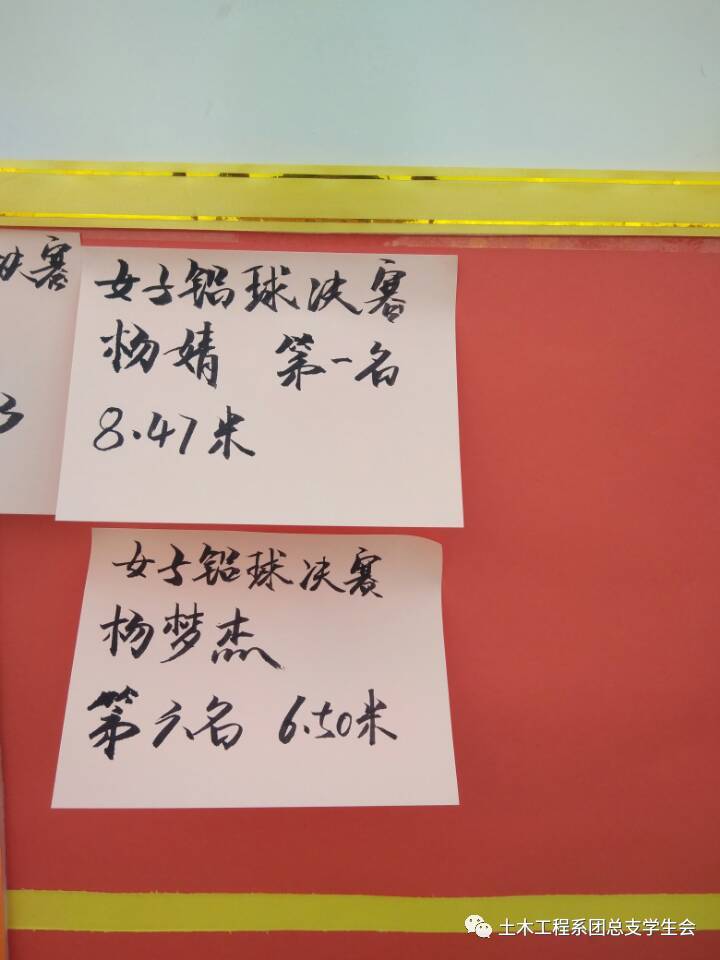 决赛
女子铅球决赛
杨婧 第一名
8.47米
女子铅球决赛
杨梦杰
第六名 6.50米
土木工程系团总支学生会